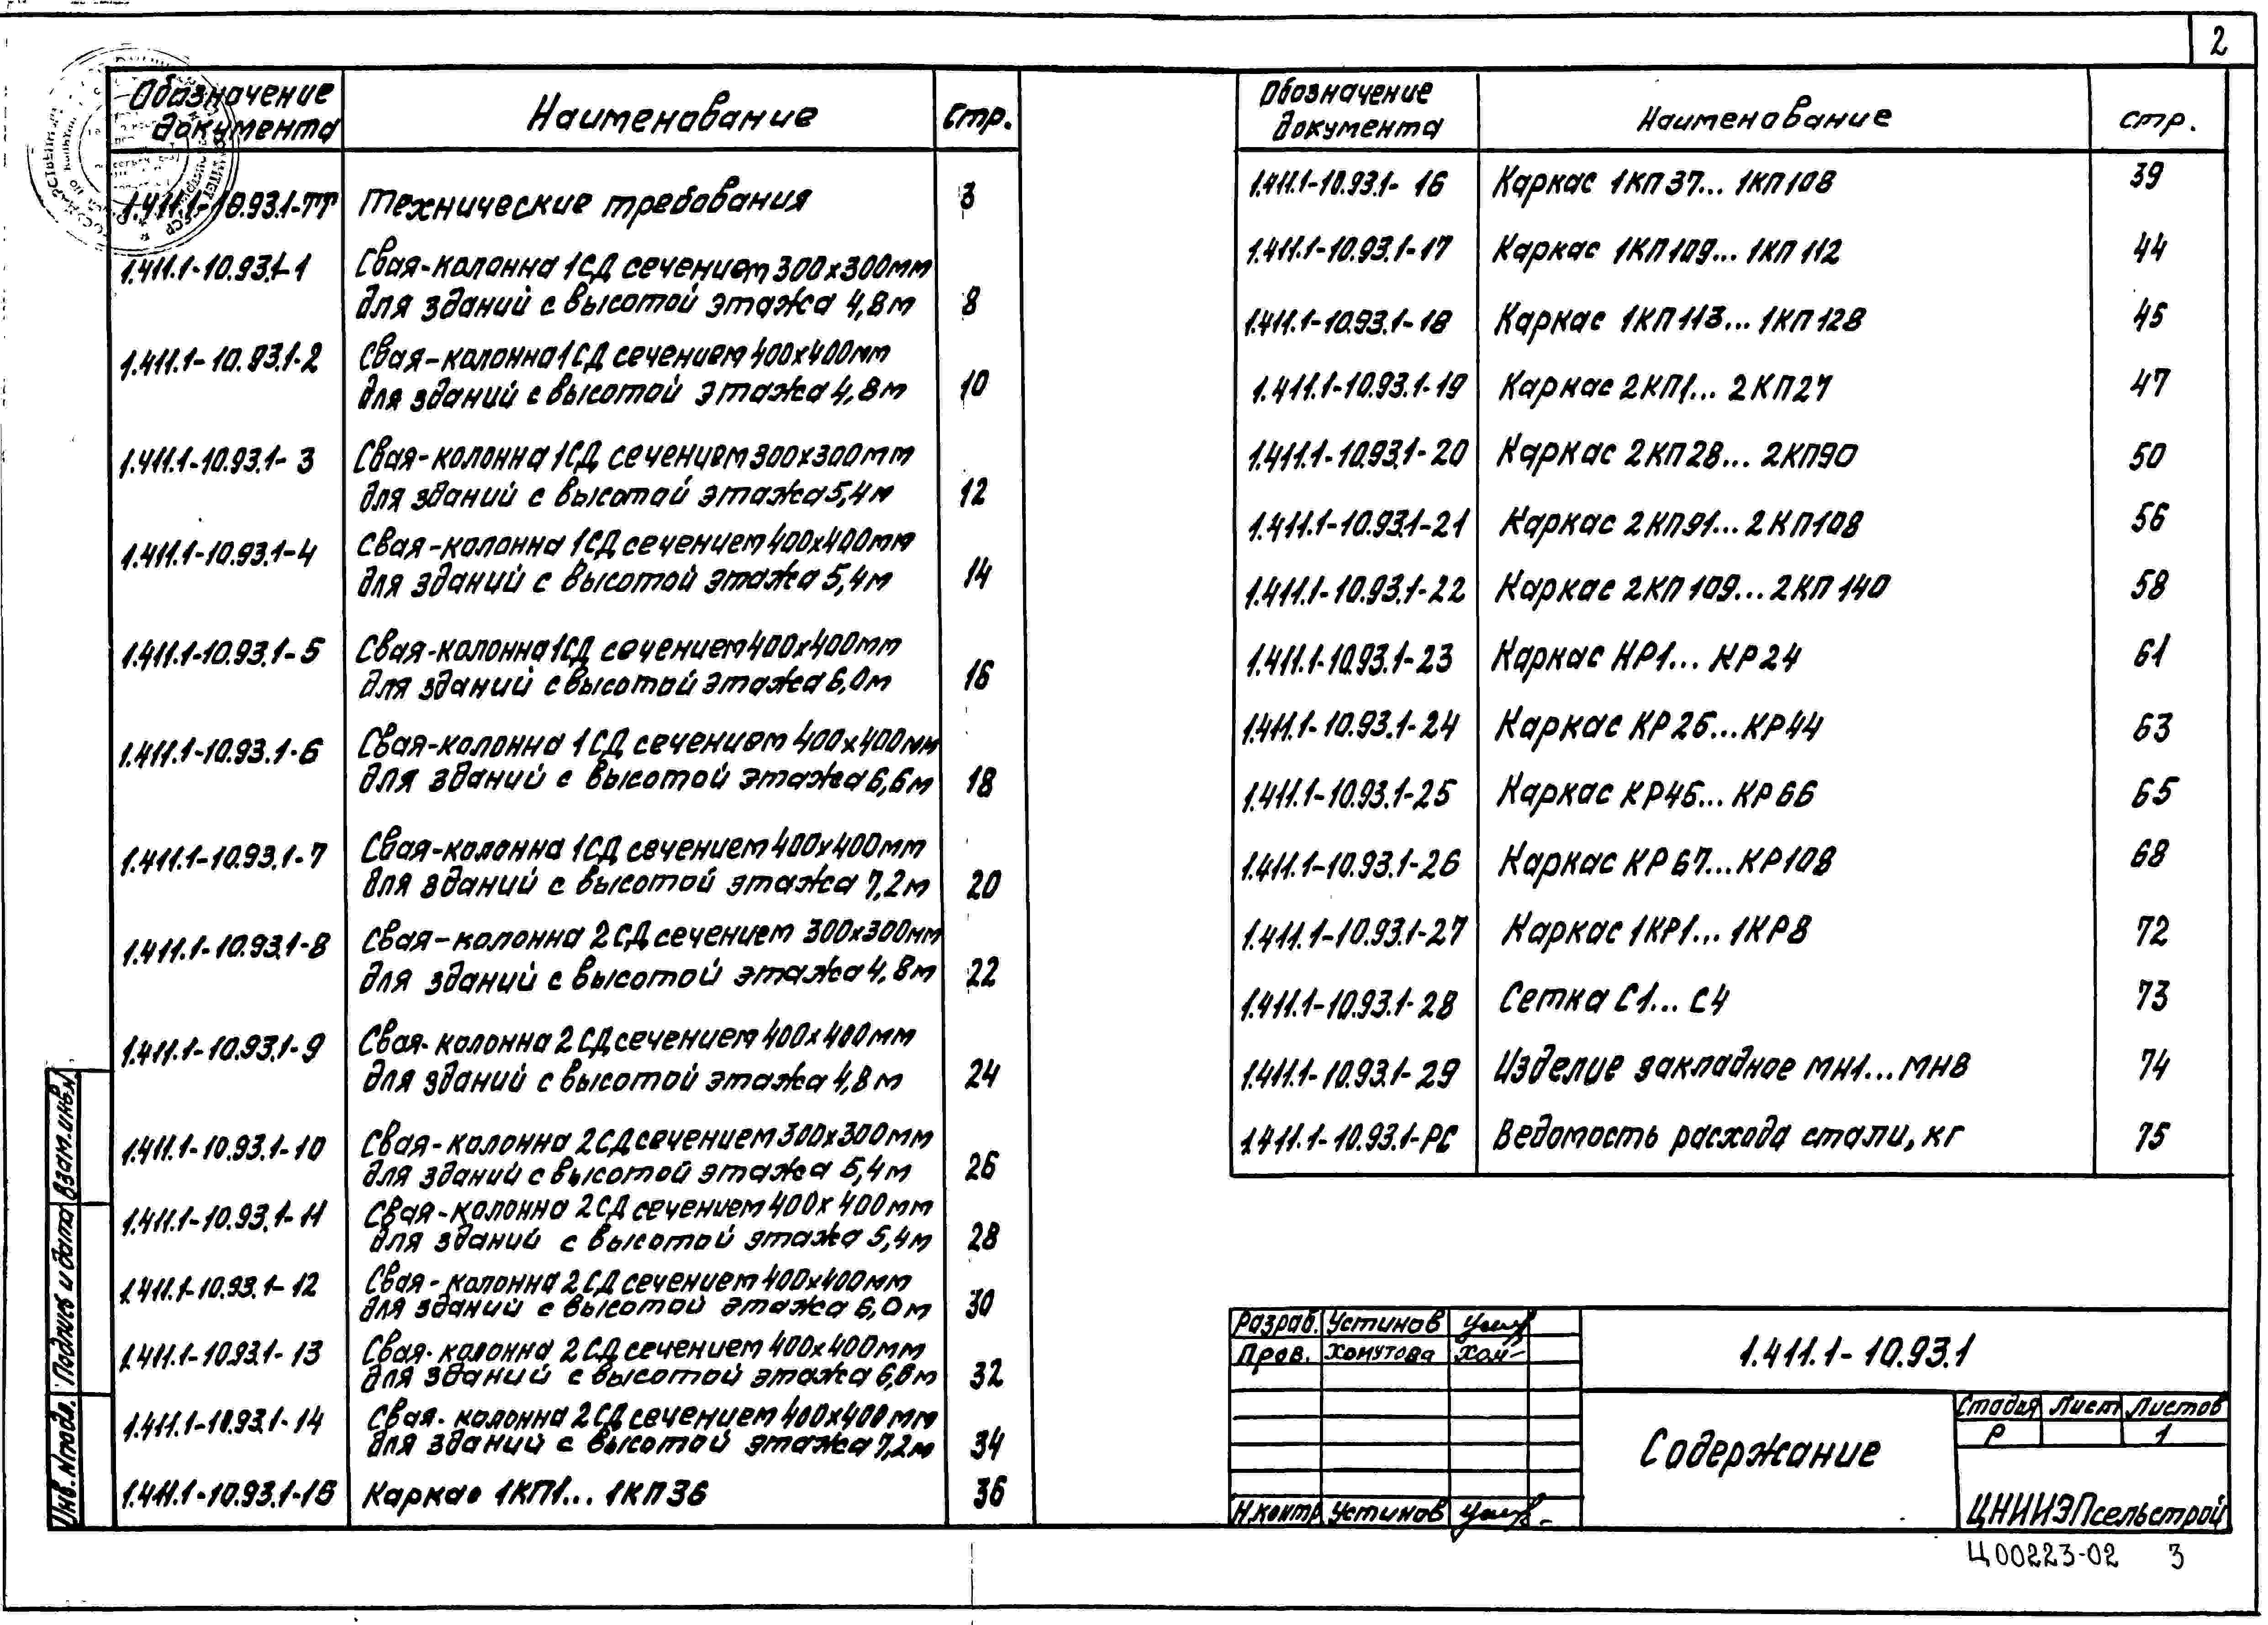 2
Обозначение документа Наименование стр.
1.411.1-10.93.1-ТТ Технические требования 3
1.411.1-10.93.1-1 Свая-колонна 1СД сечением 300х300мм
для зданий с высотой этажа 4,8м 8
1.411.1-10.93.1-2 Свая-колонна 1СД сечением 400х400мм
для зданий с высотой этажа 4,8м 10
1.411.1-10.93.1-3 Свая-колонна 1СД сечением 300х300мм
для зданий с высотой этажа 5,4м 12
1.411.1-10.93.1-4 Свая-колонна 1СД сечением 400х400мм
для зданий с высотой этажа 5,4м 14
1.411.1-10.93.1-5 Свая-колонна 1СД сечением 400х400мм
для зданий с высотой этажа 6,0м 16
1.411.1-10.93.1-6 Свая-колонна 1СД сечением 400х400мм
для зданий с высотой этажа 6,6м 18
1.411.1-10.93.1-7 Свая-колонна 1СД сечением 400х400мм
для зданий с высотой этажа 7,2м 20
1.411.1-10.93.1-8 Свая-колонна 2СД сечением 300х300мм
для зданий с высотой этажа 4,8м 22
1.411.1-10.93.1-9 Свая-колонна 2СД сечением 400х400мм
для зданий с высотой этажа 4,8м 24
1.411.1-10.93.1-10 Свая-колонна 2СД сечением 300х300мм
для зданий с высотой этажа 5,4м 26
1.411.1-10.93.1-11 Свая-колонна 2СД сечением 400х400мм
для зданий с высотой этажа 5,4м 28
1.411.1-10.93.1-12 Свая-колонна 2СД сечением 400х400мм
для зданий с высотой этажа 6,0м 30
1.411.1-10.93.1-13 Свая-колонна 2СД сечением 400х400мм
для зданий с высотой этажа 6,6м 32
1.411.1-10.93.1-14 Свая-колонна 2СД сечением 400х400мм
для зданий с высотой этажа 7,2м 34
1.411.1-10.93.1-15 Каркас 1КП1... 1КП36 36
Обозначение документа Наименование стр.
1.411.1-10.93.1-16 Каркас 1КП37... 1КП108 39
1.411.1-10.93.1-17 Каркас 1КП109... 1КП112 44
1.411.1-10.93.1-18 Каркас 1КП113... 1КП128 45
1.411.1-10.93.1-19 Каркас 2КП1... 2КП27 47
1.411.1-10.93.1-20 Каркас 2КП28... 2КП90 50
1.411.1-10.93.1-21 Каркас 2КП91... 2КП108 56
1.411.1-10.93.1-22 Каркас 2КП109... 2КП140 58
1.411.1-10.93.1-23 Каркас КР1... КР24 61
1.411.1-10.93.1-24 Каркас КР25...КР44 63
1.411.1-10.93.1-25 Каркас КР45... КР66 65
1.411.1-10.93.1-26 Каркас КР67...КР108 68
1.411.1-10.93.1-27 Каркас 1КР1... 1КР8 72
1.411.1-10.93.1-28 Сетка С1... С4 73
1.411.1-10.93.1-29 Изделие закладное МН1...МН8 74
1.411.1-10.93.1-РС Ведомость расхода стали, кг 75
Взам.инв.№
Подпись и дата
Инв.№подл.
Разраб. Устинов
Пров. Хомутова
Н.контр. Устинов
1.411.1-10.93.1
Содержание
Стадия Лист Листов
Р 1
ЦНИИЭПсельстрой
Ц00223-02 3